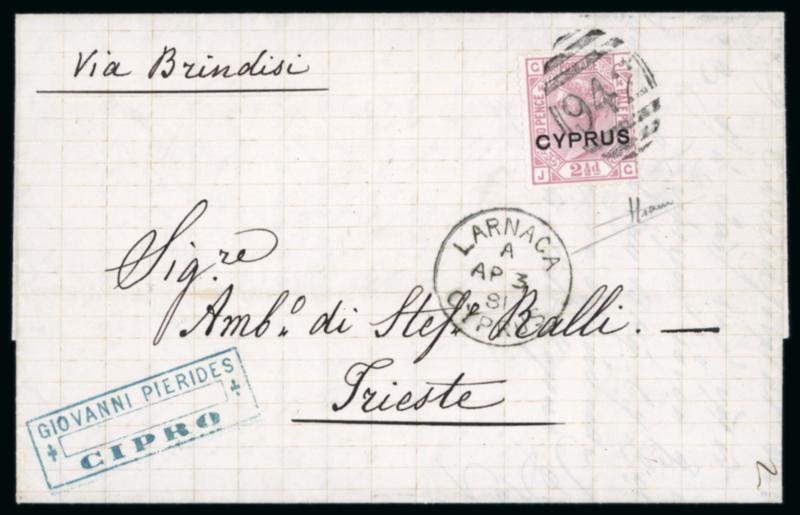 Via Brindisi
G G
942
CYPRUS
2½d
J G
LARNACA
A
AP 3
81
CYPRUS
Sig.re
Amb.o di Stef. Ralli. —
Trieste
GIOVANNI PIERIDES
CIPRO
2